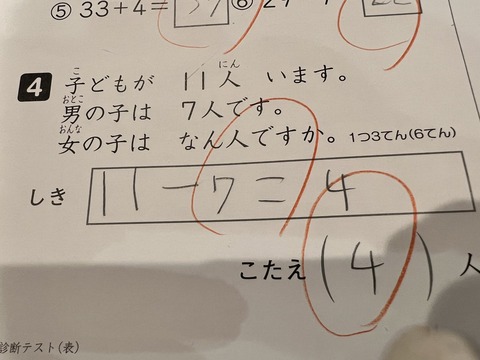 ⑤ 33+4= 37 ⑥
4 子どもが 11人 います。
男の子は 7人です。
女の子は なん人ですか。 1つ3てん(6てん)
しき 11-7=4
こたえ (4)人
診断テスト(表)